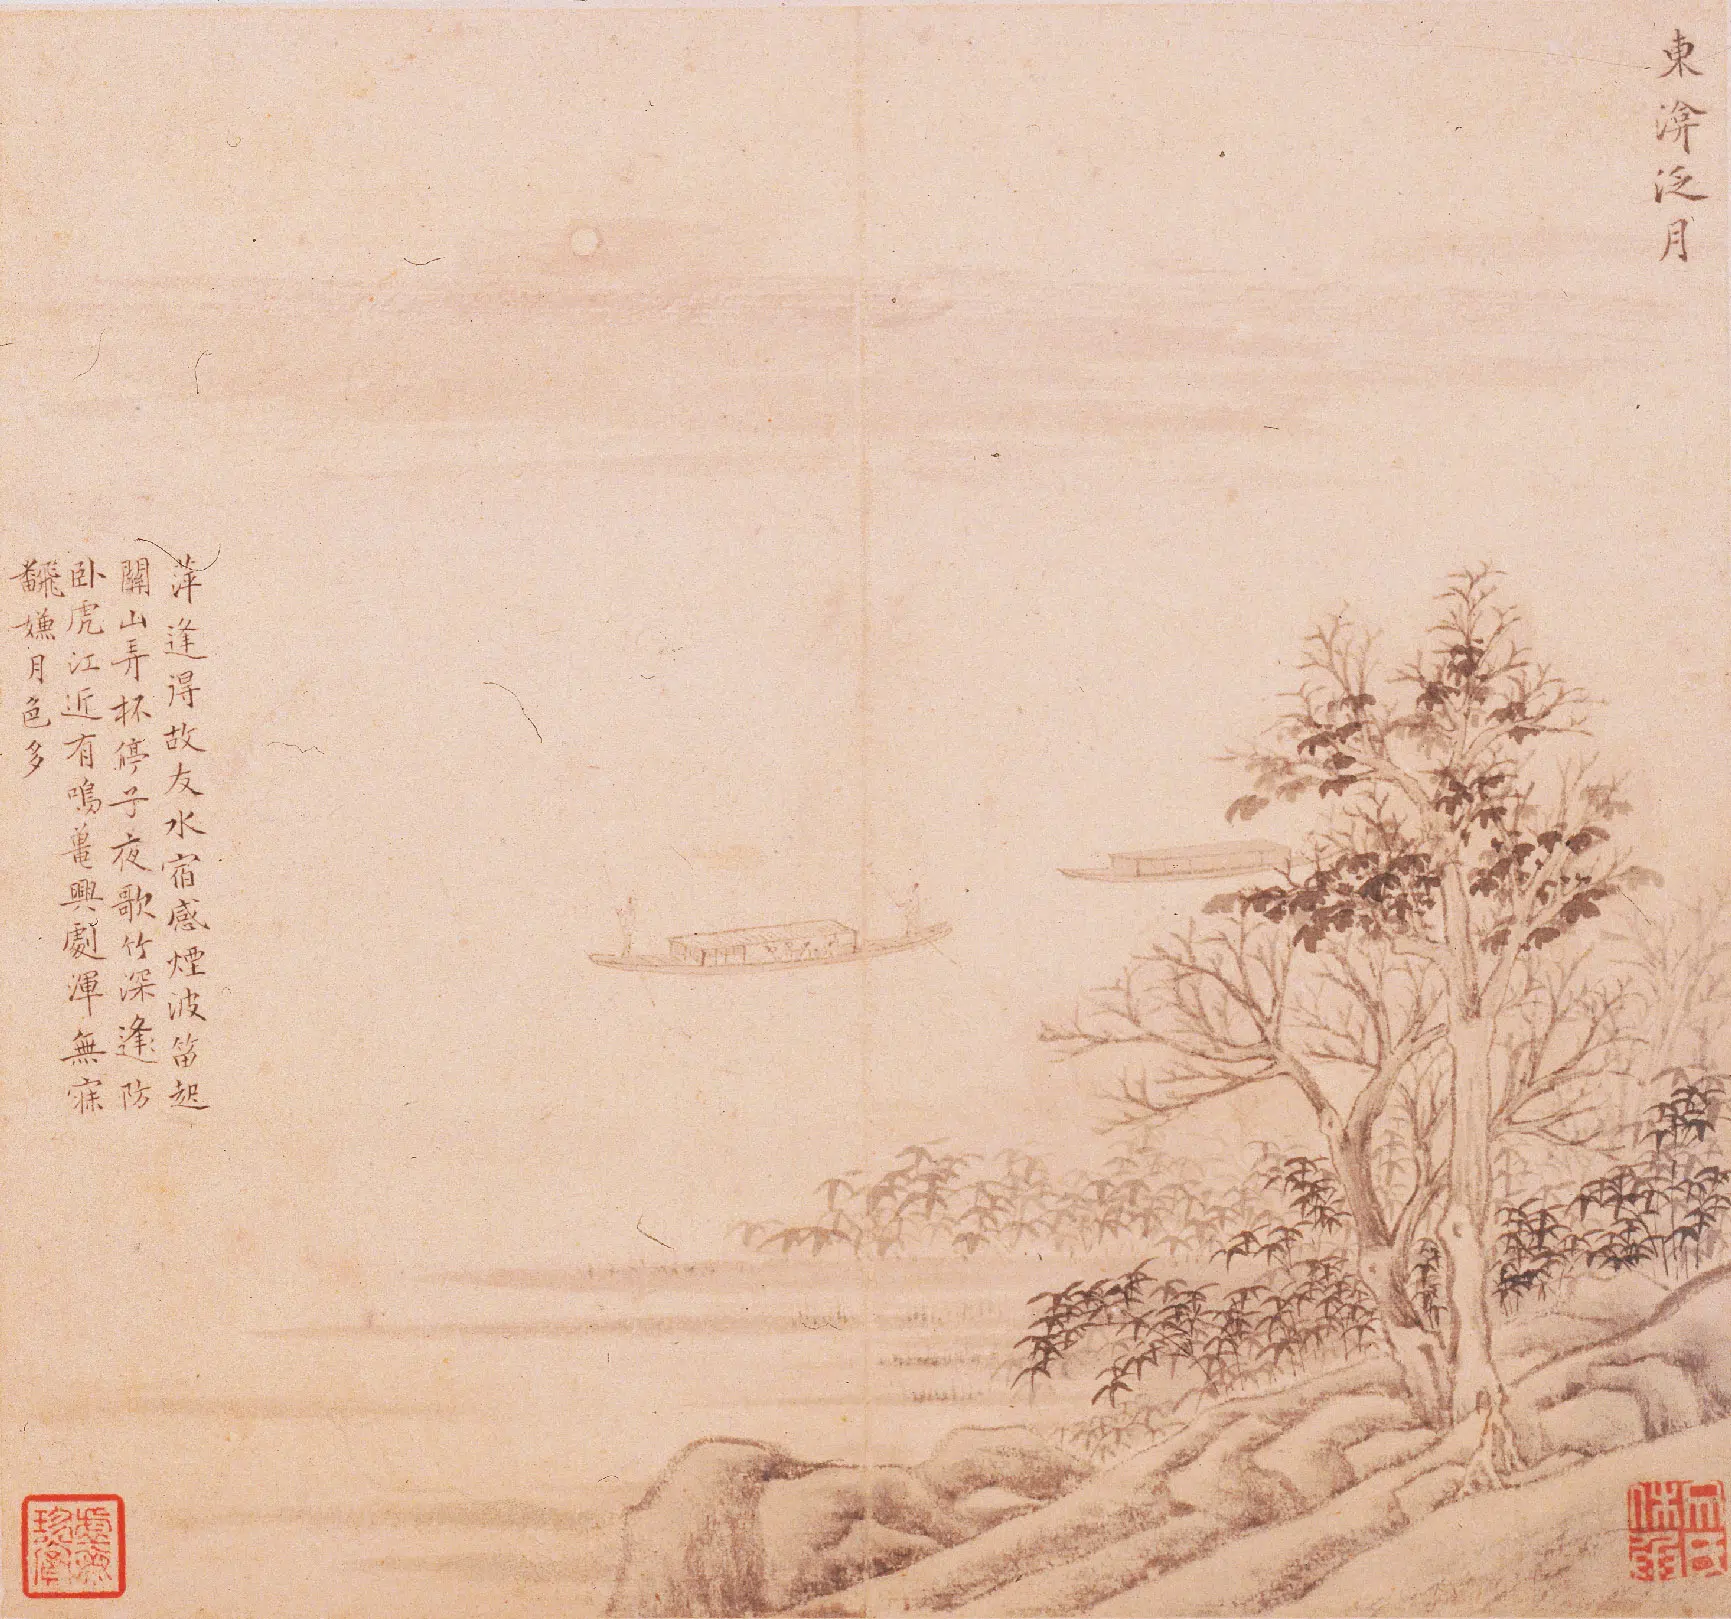 東渰泛月
萍逢得故友水宿感煙波笛起
關山弄杯停子夜歌竹深逢防
卧虎江近有鳴鼉興劇渾無寐
飜嫌月色多